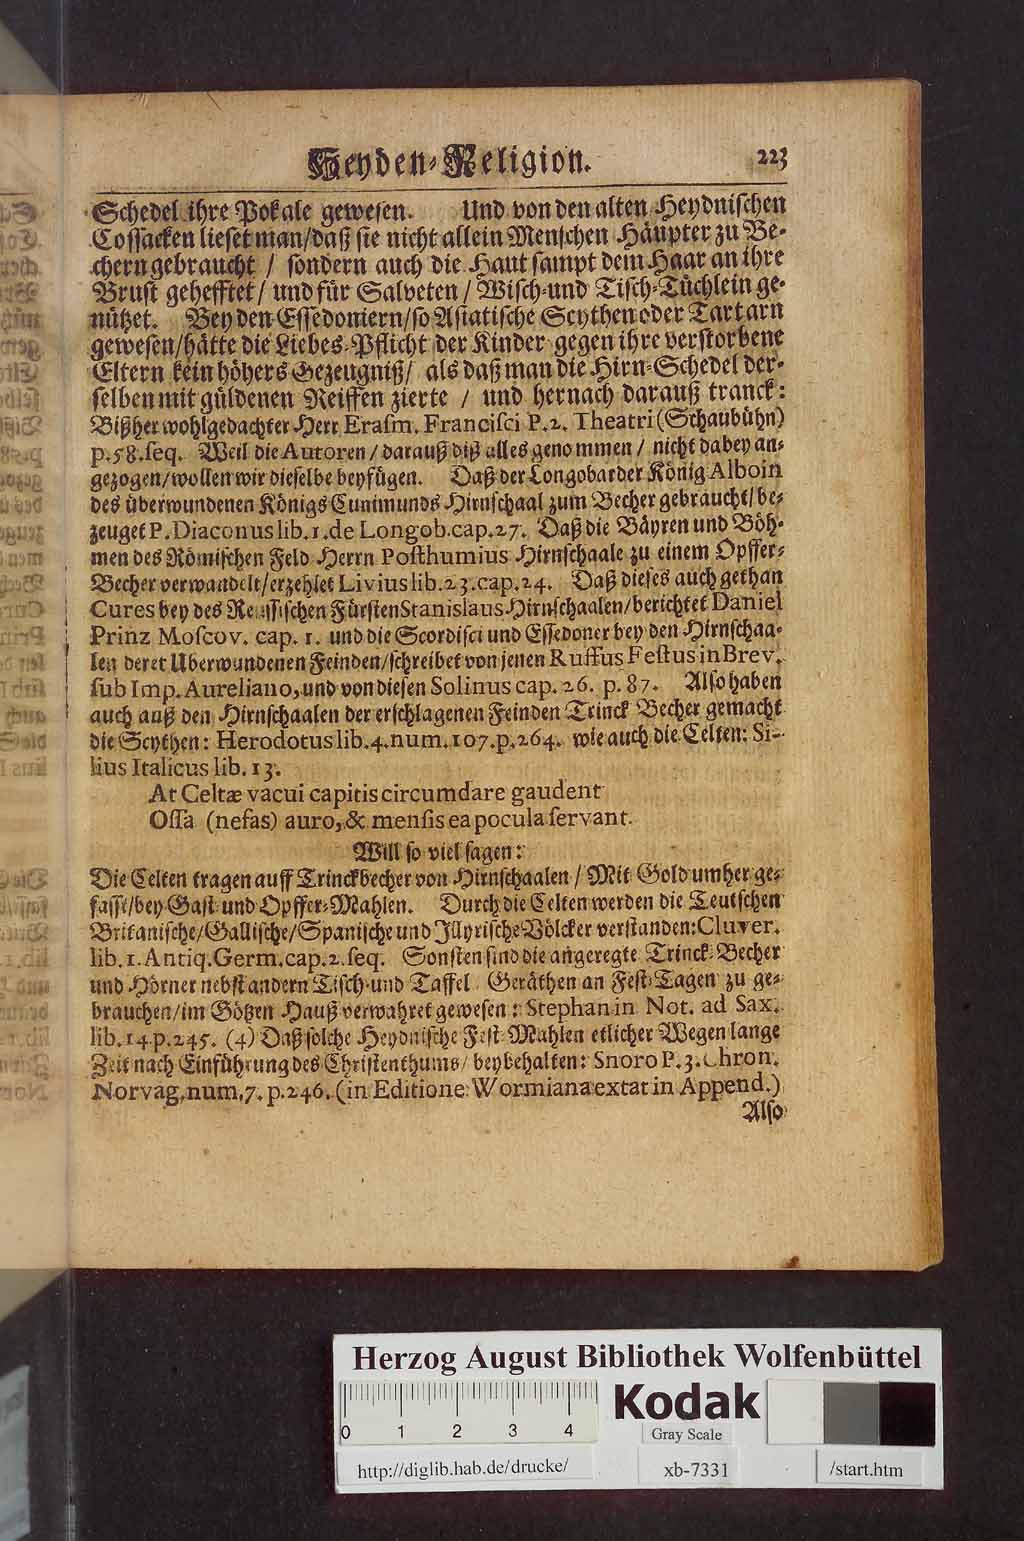 Heyden-Religion. 223
Schedel ihre Pokale gewesen. Und von den alten Heydnischen
Cossacken lieset man/daß sie nicht allein Menschen Häupter zu Be-
chern gebraucht / sondern auch die Haut sampt dem Haar an ihre
Brust gehefftet/ und für Salveten/ Wisch-und Tisch-Tüchlein ge-
nützet. Bey den Essedoniern/so Asiatische Scythen oder Tartarn
gewesen/hätte die Liebes-Pflicht der Kinder gegen ihre verstorbene
Eltern kein höhers Gezeugniß/ als daß man die Hirn-Schedel der-
selben mit güldenen Reiffen zierte / und hernach darauß tranck:
Bißher wohlgedachter Herr Erasm. Francisci P. 2. Theatri (Schaubühn)
p. 58. seq. Weil die Autoren/ darauß diß alles genommen / nicht dabey an-
gezogen/wollen wir dieselbe beyfügen. Daß der Longobarder König Alboin
des überwundenen Königs Cunimunds Hirnschaal zum Becher gebraucht/be-
zeuget P. Diaconus lib. 1. de Longob. cap. 27. Daß die Bäyren und Böh-
men des Römischen Feld Herrn Posthumius Hirnschaale zu einem Opffer-
Becher verwandelt/erzehlet Livius lib. 23. cap. 24. Daß dieses auch gethan
Cures bey des Reussischen Fürsten Stanislaus Hirnschaalen/berichtet Daniel
Prinz Moscov. cap. 1. und die Scordisci und Essedoner bey den Hirnschaa-
len deret Uberwundenen Feinden/schreibet von jenen Ruffus Festus in Brev.
sub Imp. Aureliano, und von diesen Solinus cap. 26. p. 87. Also haben
auch auß den Hirnschaalen der erschlagenen Feinden Trinck Becher gemacht
die Scythen: Herodotus lib. 4. num. 107. p. 264. wie auch die Celten: Si-
lius Italicus lib. 13.
At Celtæ vacui capitis circumdare gaudent
Ossa (nefas) auro, & mensis ea pocula servant.
Will so viel sagen:
Die Celten tragen auff Trinckbecher von Hirnschaalen / Mit Gold umher ge-
fasst/bey Gast und Opffer-Mahlen. Durch die Celten werden die Teutschen
Britanische/Gallische/Spanische und Illyrische Völcker verstanden: Cluver.
lib. 1. Antiq. Germ. cap. 2. seq. Sonsten sind die angeregte Trinck-Becher
und Hörner nebst andern Tisch-und Taffel Geräthen an Fest-Tagen zu ge-
brauchen/im Götzen Hauß verwahret gewesen: Stephan in Not. ad Sax.
lib. 14. p. 245. (4) Daß solche Heydnische Fest-Mahlen etlicher Wegen lange
Zeit nach Einführung des Christenthums/ beybehalten: Snoro P. 3. Chron.
Norvag, num, 7. p. 246. (in Editione Wormiana extat in Append.)
Also
Herzog August Bibliothek Wolfenbüttel
0 1 2 3 4
Kodak
Gray Scale
http://diglib.hab.de/drucke/ xb-7331 /start.htm